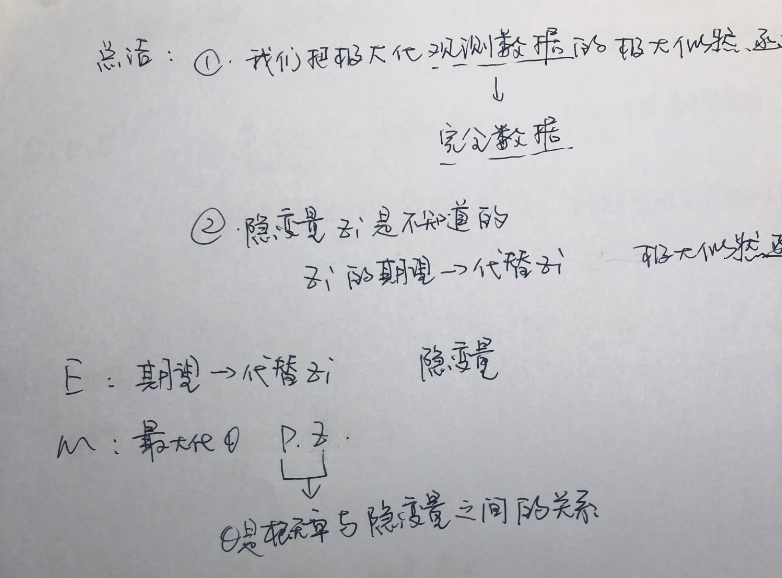 总结：①. 我们把极大化观测数据的极大似然函
↓
完全数据
② 隐变量 zi 是不知道的
zi 的期望 → 代替 zi 极大似然函
E：期望 → 代替 zi 隐变量
M：最大化 θ P. Z.
↓
θ是概率与隐变量之间的关系